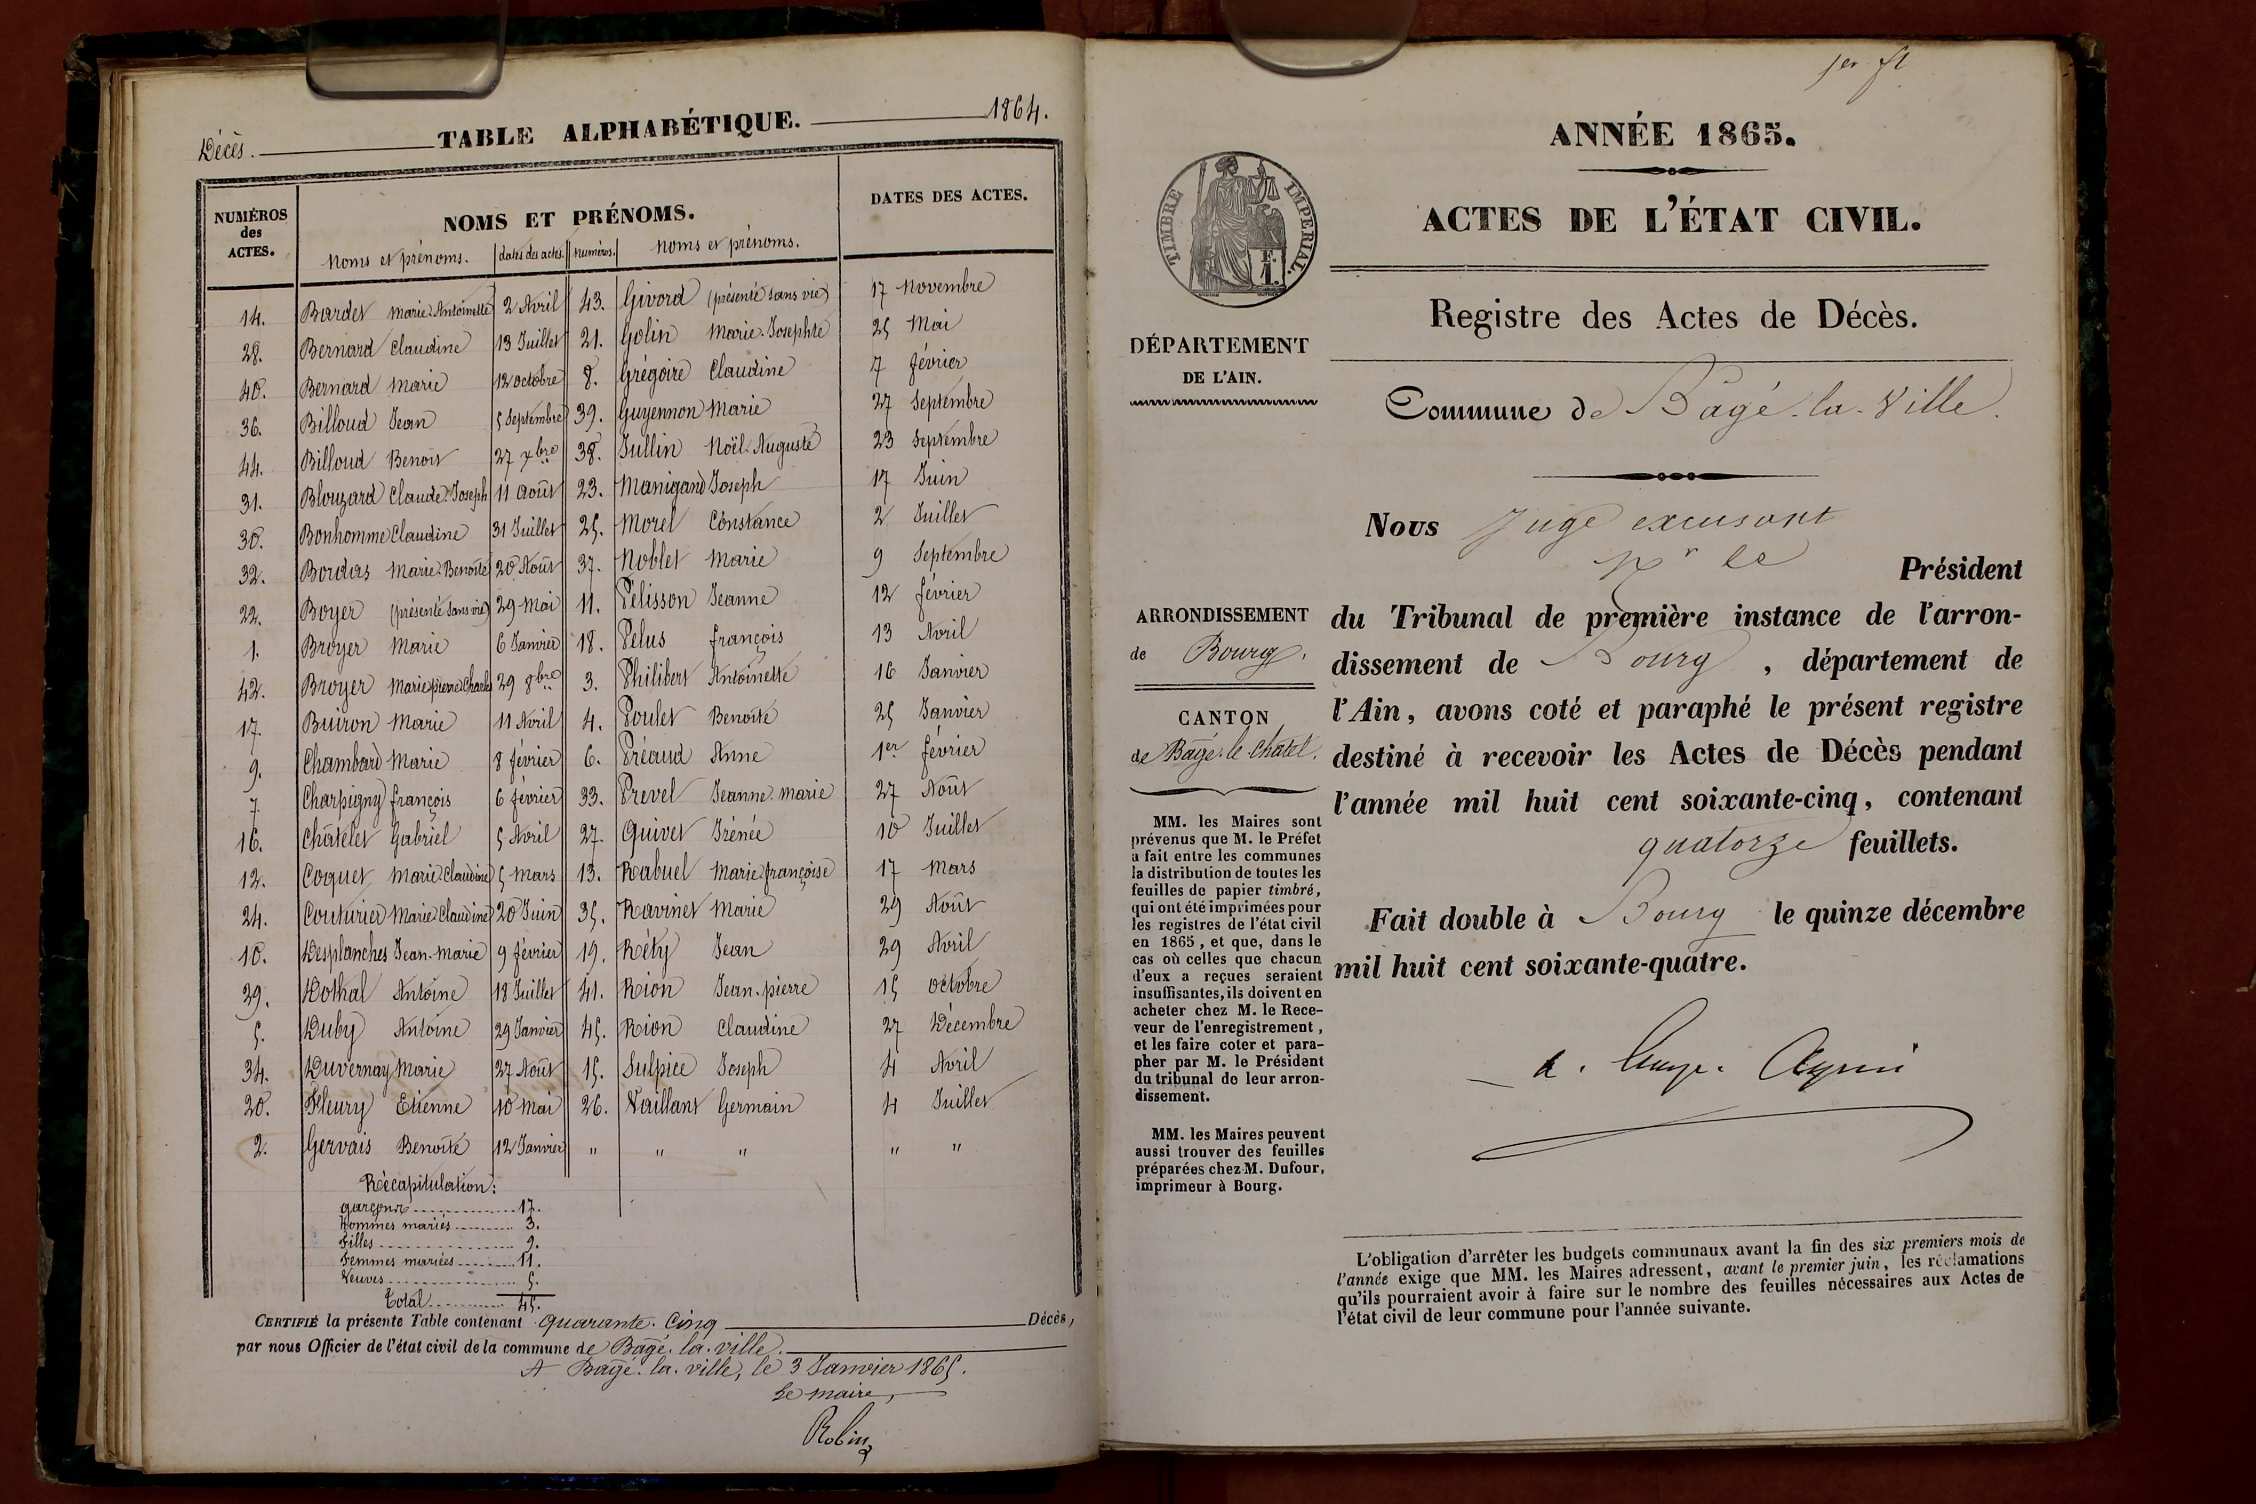 Décès. TABLE ALPHABÉTIQUE. 1864.
NUMÉROS des ACTES. NOMS ET PRÉNOMS. DATES DES ACTES.
Noms et prénoms. dates des actes. Numéros. Noms et prénoms.
14. Bardet Marie Antoinette 2 Avril 43. Givord (présenté sans vie) 17 Novembre
28. Bernard Claudine 13 Juillet 21. Golin Marie-Josephte 25 Mai
40. Bernard Marie 12 octobre 8. Grégoire Claudine 7 février
36. Billoud Jean 5 Septembre 39. Guyennon Marie 27 Septembre
44. Billoud Benoit 27 xbre 38. Jullin Noël-Auguste 23 Septembre
31. Blouzard Claude-Joseph 11 Août 23. Manigand Joseph 17 Juin
30. Bonhomme Claudine 31 Juillet 25. Morel Constance 2 Juillet
32. Bordas Marie-Benoîte 20 Août 37. Noblet Marie 9 Septembre
22. Boyer (présenté sans vie) 29 Mai 11. Pélisson Jeanne 12 février
1. Broyer Marie 6 Janvier 18. Pelus françois 13 Avril
42. Broyer Marie pierre Charles 29 8bre 3. Philibert Antoinette 16 Janvier
17. Buiron Marie 11 Avril 4. Poulet Benoîte 25 Janvier
9. Chambard Marie 8 février 6. Préaud Anne 1er février
7. Charpigny françois 6 février 33. Prevel Jeanne-marie 27 Août
16. Châtelet Gabriel 5 Avril 27. Quivet Irénée 10 Juillet
12. Coquet Marie-Claudine 5 Mars 13. Rabuel Marie françoise 17 Mars
24. Couturier Marie Claudine 20 Juin 35. Ravinet Marie 29 Août
10. Desplanches Jean-Marie 9 février 19. Réty Jean 29 Avril
29. Dothal Antoine 18 Juillet 41. Rion Jean-pierre 15 octobre
5. Duby Antoine 29 Janvier 45. Rion Claudine 27 Décembre
34. Duvernay Marie 27 Août 15. Sulpice Joseph 4 Avril
20. Fleury Etienne 10 Mai 26. Vaillant Germain 4 Juillet
2. Gervais Benoîte 12 Janvier " " " " "
Récapitulation:
garçons 17.
Hommes mariés 3.
Filles 9.
Femmes mariées 11.
Veuves 5.
Total 45.
CERTIFIÉ la présente Table contenant quarante-Cinq Décès,
par nous Officier de l'état civil de la commune de Bagé-la-ville.
A Bagé-la-ville, le 3 Janvier 1865.
Le maire,
Robin
1er ft
ANNÉE 1865.
ACTES DE L'ÉTAT CIVIL.
TIMBRE IMPERIAL.
F. 1.
Registre des Actes de Décès.
DÉPARTEMENT
DE L'AIN.
Commune de Bagé-la-Ville.
Nous Juge excusant
Mr le Président
ARRONDISSEMENT
de Bourg.
du Tribunal de première instance de l'arron-
dissement de Bourg, département de
l'Ain, avons coté et paraphé le présent registre
destiné à recevoir les Actes de Décès pendant
l'année mil huit cent soixante-cinq, contenant
quatorze feuillets.
Fait double à Bourg le quinze décembre
mil huit cent soixante-quatre.
CANTON
de Bagé-le-Chatel.
MM. les Maires sont
prévenus que M. le Préfet
a fait entre les communes
la distribution de toutes les
feuilles de papier timbré,
qui ont été imprimées pour
les registres de l'état civil
en 1865, et que, dans le
cas où celles que chacun
d'eux a reçues seraient
insuffisantes, ils doivent en
acheter chez M. le Rece-
veur de l'enregistrement,
et les faire coter et para-
pher par M. le Président
du tribunal de leur arron-
dissement.
MM. les Maires peuvent
aussi trouver des feuilles
préparées chez M. Dufour,
imprimeur à Bourg.
L'obligation d'arrêter les budgets communaux avant la fin des six premiers mois de
l'année exige que MM. les Maires adressent, avant le premier juin, les réclamations
qu'ils pourraient avoir à faire sur le nombre des feuilles nécessaires aux Actes de
l'état civil de leur commune pour l'année suivante.